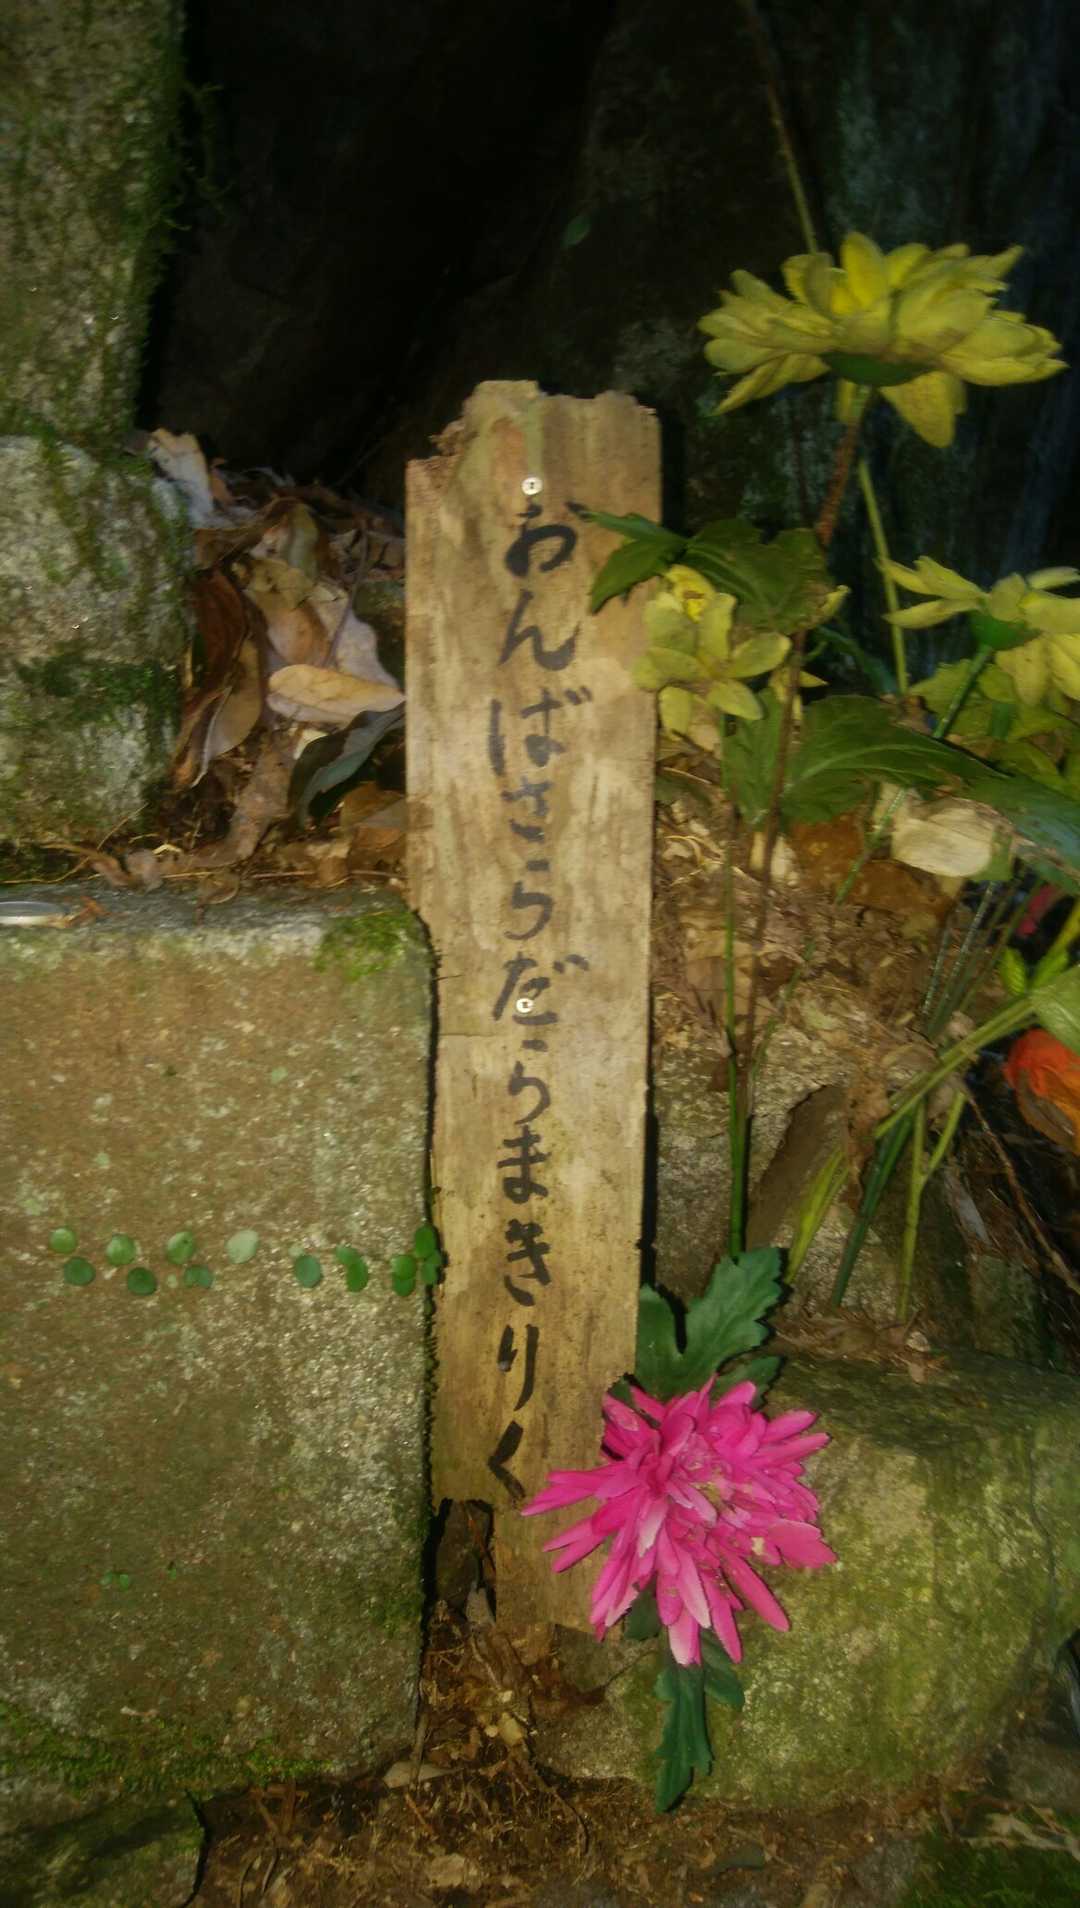 おんばさらだらまきりく